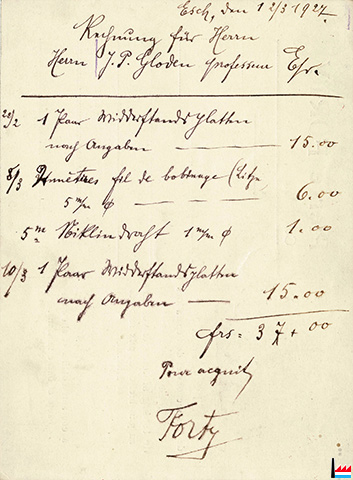 Esch, den 12/3 1927.
Rechnung für Herrn
Herrn J. P. Gloden professeur Esch.
28/2 1 Paar Widderstandsplatten
nach Angaben — 15.00
8/3 mètres fil de bobinage (Litze
5 m/m φ — 6.00
5 m Niklindraht 1 m/m φ 1.00
10/3 1 Paar Widderstandsplatten
nach Angaben — 15.00
frs = 37 + 00
Pour acquit
Forty